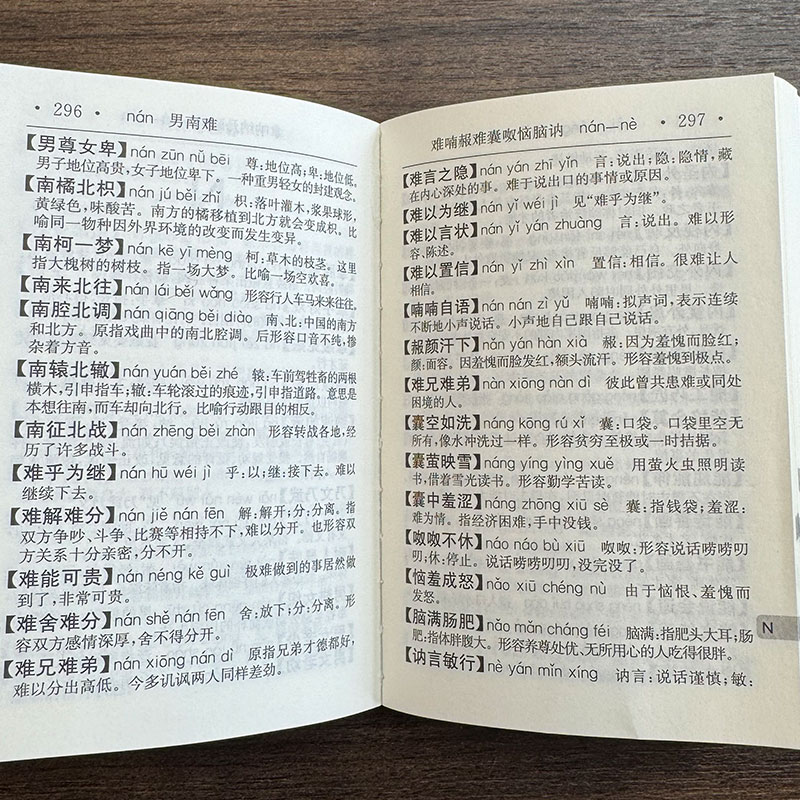 · 296 · nán 男南难
【男尊女卑】nán zūn nǚ bēi 尊:地位高;卑:地位低。
男子地位高贵,女子地位卑下。一种重男轻女的封建观念。
【南橘北枳】nán jú běi zhǐ 枳:落叶灌木,浆果球形,
黄绿色,味酸苦。南方的橘移植到北方就会变成枳。比
喻同一物种因外界环境的改变而发生变异。
【南柯一梦】nán kē yī mèng 柯:草木的枝茎。这里
指大槐树的树枝。指一场大梦。比喻一场空欢喜。
【南来北往】nán lái běi wǎng 形容行人车马来来往往。
【南腔北调】nán qiāng běi diào 南、北:中国的南方
和北方。原指戏曲中的南北腔调。后形容口音不纯,掺
杂着方音。
【南辕北辙】nán yuán běi zhé 辕:车前驾牲畜的两根
横木,引申指车;辙:车轮滚过的痕迹,引申指道路。意思是
本想往南,而车却向北行。比喻行动跟目的相反。
【南征北战】nán zhēng běi zhàn 形容转战各地,经
历了许多战斗。
【难乎为继】nán hū wéi jì 乎:以;继:接下去。难以
继续下去。
【难解难分】nán jiě nán fēn 解:解开;分:分离。指
双方争吵、斗争、比赛等相持不下,难以分开。也形容双
方关系十分亲密,分不开。
【难能可贵】nán néng kě guì 极难做到的事居然做
到了,非常可贵。
【难舍难分】nán shě nán fēn 舍:放下;分:分离。形
容双方感情深厚,舍不得分开。
【难兄难弟】nán xiōng nán dì 原指兄弟才德都好,
难以分出高低。今多讥讽两人同样差劲。
难喃赧难囊呶恼脑讷 nán—nè · 297 ·
【难言之隐】nán yán zhī yǐn 言:说出;隐:隐情,藏
在内心深处的事。难于说出口的事情或原因。
【难以为继】nán yǐ wéi jì 见“难乎为继”。
【难以言状】nán yǐ yán zhuàng 言:说出。难以形
容、陈述。
【难以置信】nán yǐ zhì xìn 置信:相信。很难让人
相信。
【喃喃自语】nán nán zì yǔ 喃喃:拟声词,表示连续
不断地小声说话。小声地自己跟自己说话。
【赧颜汗下】nǎn yán hàn xià 赧:因为羞愧而脸红;
颜:面容。因羞愧而脸发红,额头流汗。形容羞愧到极点。
【难兄难弟】nàn xiōng nàn dì 彼此曾共患难或同处
困境的人。
【囊空如洗】náng kōng rú xǐ 囊:口袋。口袋里空无
所有,像水冲洗过一样。形容贫穷至极或一时拮据。
【囊萤映雪】náng yíng yìng xuě 用萤火虫照明读
书,借着雪光读书。形容勤学苦读。
【囊中羞涩】náng zhōng xiū sè 囊:指钱袋;羞涩:
难为情。指经济困难,手中没钱。
【呶呶不休】náo náo bù xiū 呶呶:形容说话唠唠叨
叨;休:停止。说话唠唠叨叨,没完没了。
【恼羞成怒】nǎo xiū chéng nù 由于恼恨、羞愧而
发怒。
【脑满肠肥】nǎo mǎn cháng féi 脑满:指肥头大耳;肠
肥:指体胖腹大。形容养尊处优、无所用心的人吃得很胖。
【讷言敏行】nè yán mǐn xíng 讷言:说话谨慎;敏:
N